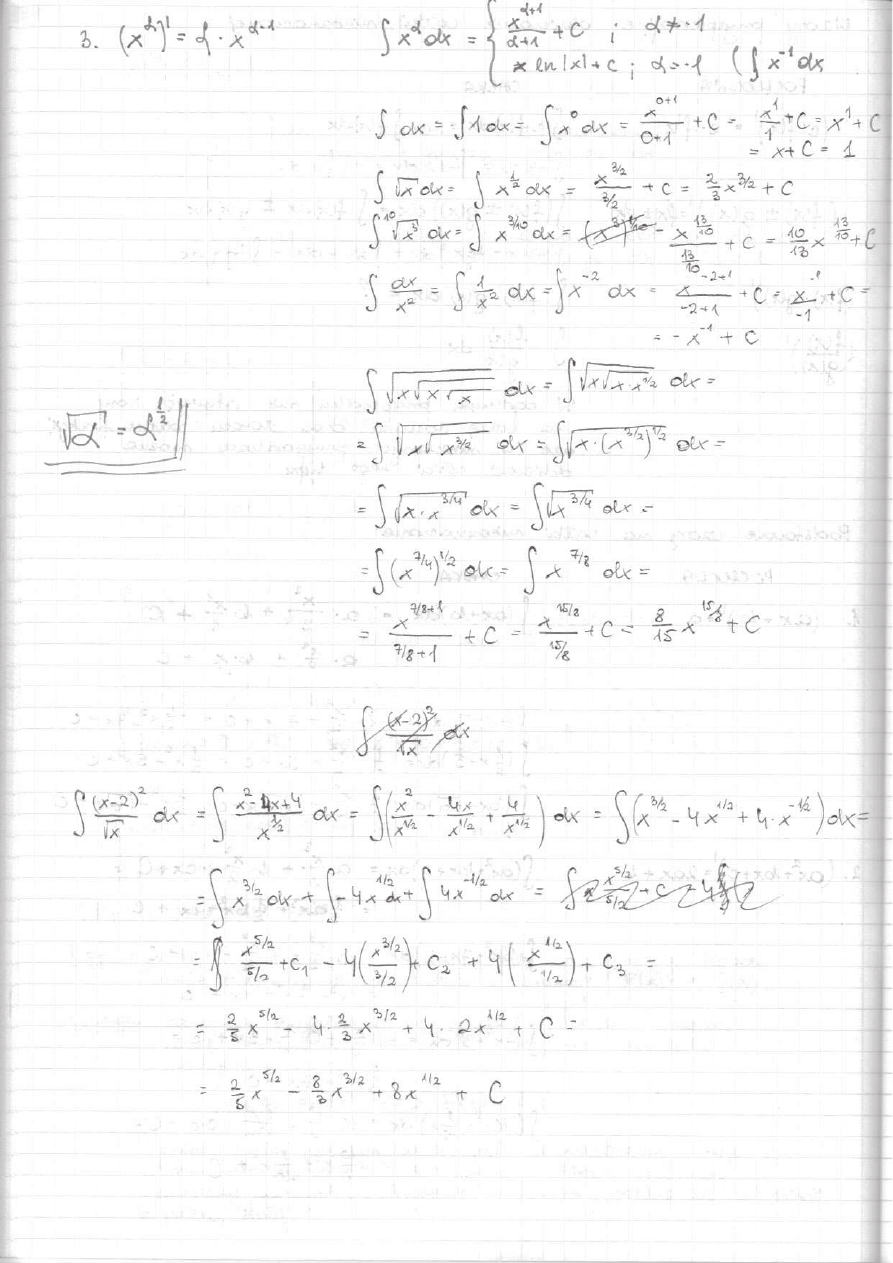 3. (x^α)' = α · x^(α-1)    ∫ x^α dx = { x^(α+1)/(α+1) + C ; α ≠ -1
ln|x| + C ; α = -1 (∫ x^(-1) dx
∫ dx = ∫ 1 dx = ∫ x^0 dx = x^(0+1)/(0+1) + C = x^1/1 + C = x^1 + C
= x + C = 1
∫ √x dx = ∫ x^(1/2) dx = x^(3/2)/(3/2) + C = 2/3 x^(3/2) + C
∫ ¹⁰√x³ dx = ∫ x^(3/10) dx = x^(13/10)/(13/10) + C = 10/13 x^(13/10) + C
∫ dx/x² = ∫ 1/x² dx = ∫ x^(-2) dx = x^(-2+1)/(-2+1) + C = x^(-1)/(-1) + C =
= -x^(-1) + C
∫ √(x√(x√(x√x))) dx = ∫ √(x√(x·x^(1/2))) dx =
√α = α^(1/2)
= ∫ √(x√(x^(3/2))) dx = ∫ √(x·(x^(3/2))^(1/2)) dx =
= ∫ √(x·x^(3/4)) dx = ∫ √(x^(7/4)) dx =
= ∫ (x^(7/4))^(1/2) dx = ∫ x^(7/8) dx =
= x^(7/8+1)/(7/8+1) + C = x^(15/8)/(15/8) + C = 8/15 x^(15/8) + C
∫ (x-2)²/√x dx
∫ (x-2)²/√x dx = ∫ (x²-4x+4)/x^(1/2) dx = ∫ (x²/x^(1/2) - 4x/x^(1/2) + 4/x^(1/2)) dx = ∫ (x^(3/2) - 4x^(1/2) + 4·x^(-1/2)) dx =
= ∫ x^(3/2) dx + ∫ -4x^(1/2) dx + ∫ 4x^(-1/2) dx =
= x^(5/2)/(5/2) + C₁ - 4(x^(3/2)/(3/2)) + C₂ + 4(x^(1/2)/(1/2)) + C₃ =
= 2/5 x^(5/2) - 4·2/3 x^(3/2) + 4·2x^(1/2) + C =
= 2/5 x^(5/2) - 8/3 x^(3/2) + 8x^(1/2) + C